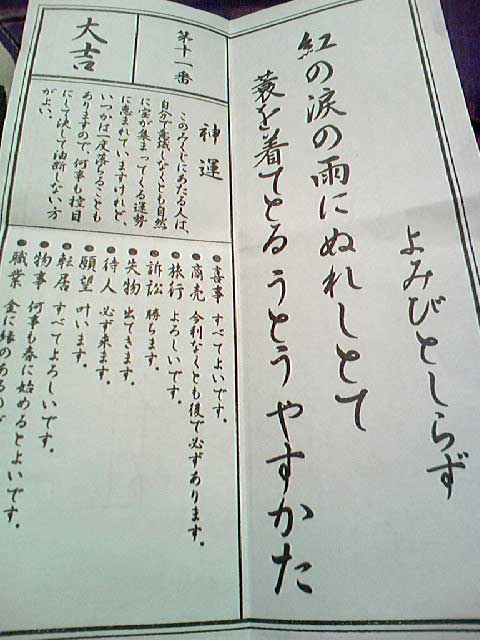 よみびとしらず
紅の涙の雨にぬれしとて
蓑を着てとるうとうやすかた
第十一番
大吉
神運
このみくじにあたる人は、
自分で意識しなくとも自然
に宝が集まってくる運勢
に恵まれていますけれど、
いつかは一度落ちることも
ありますので、何事も控目
にして決して油断しない方
がよい。
●喜事 すべてよいです。
●商売 今利なくとも後で必ずあります。
●旅行 よろしいです。
●訴訟 勝ちます。
●失物 出てきます。
●待人 必ず来ます。
●願望 叶います。
●転居 すべてよろしいです。
●物事 何事も春に始めるとよいです。
●職業 金に縁のあるので